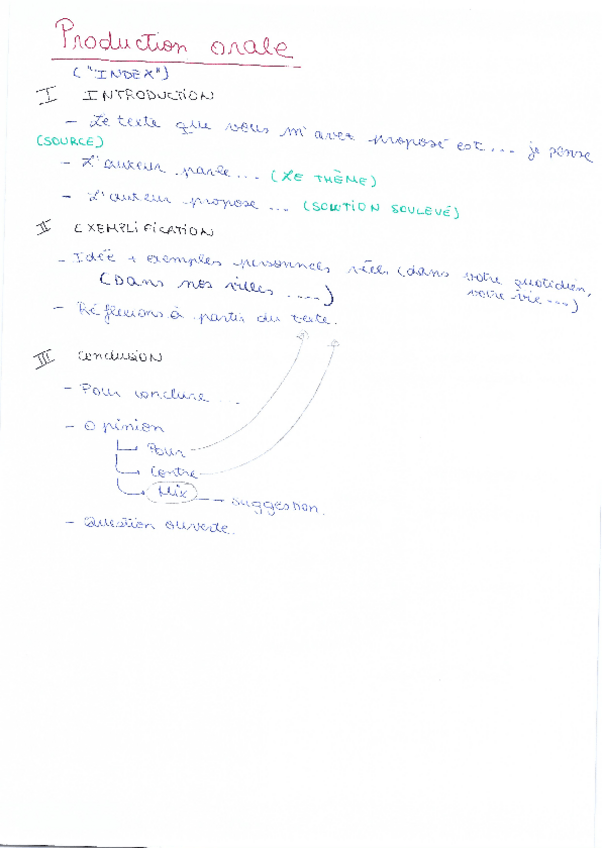 Production orale
("INDEX")
I INTRODUCTION
- Le texte que vous m'avez proposé est... je pense
(SOURCE)
- L'auteur parle... (LE THÈME)
- L'auteur propose ... (SOLUTION SOULEVÉ)
II EXEMPLIFICATION
- Idée + exemples personnels réels (dans votre quotidien,
votre vie....)
(Dans nos villes ....)
- Réflexions à partir du texte.
III Conclusion
- Pour conclure ...
- Opinion
Pour
Contre
Mix → suggestion.
- Question ouverte.